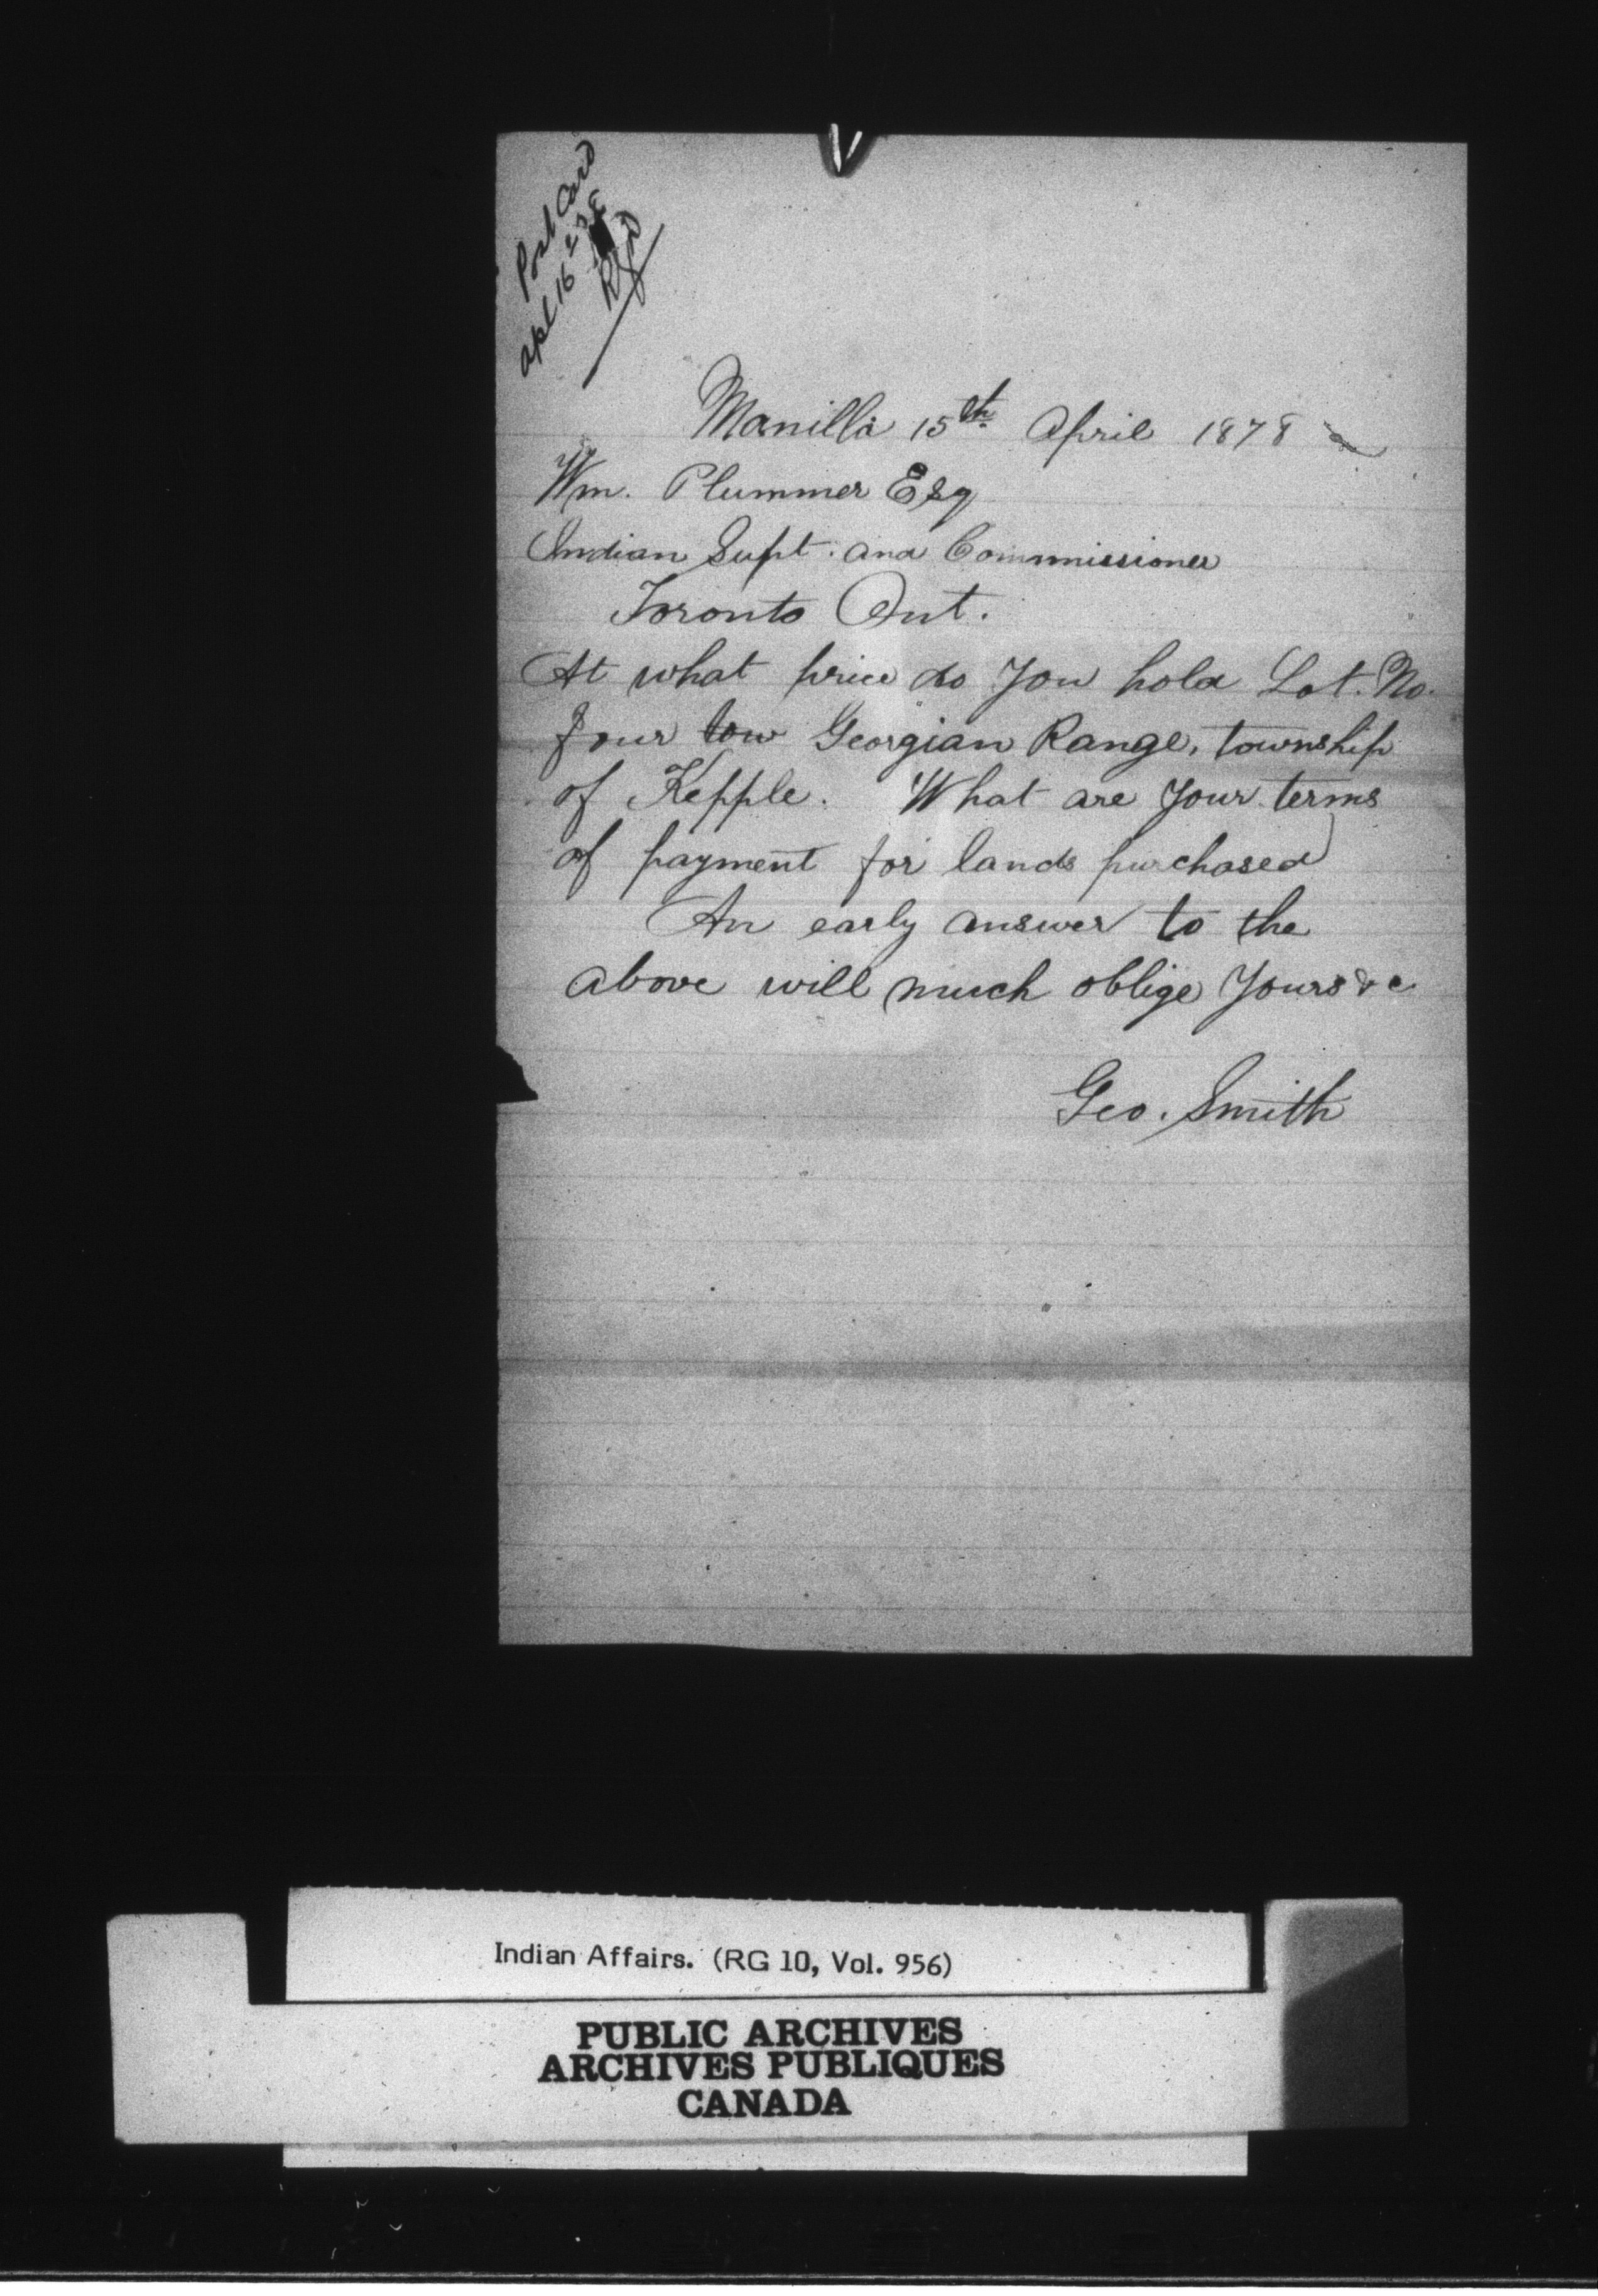 Post Card
Apl 16
Manilla 15th April 1878
Wm. Plummer Esq
Indian Supt. and Commissioner
Toronto Ont.
At what price do You hold Lot. No.
four tow Georgian Range, township
of Kepple. What are Your terms
of payment for lands purchased
An early answer to the
above will much oblige Yours &c
Geo. Smith
Indian Affairs. (RG 10, Vol. 956)
PUBLIC ARCHIVES
ARCHIVES PUBLIQUES
CANADA